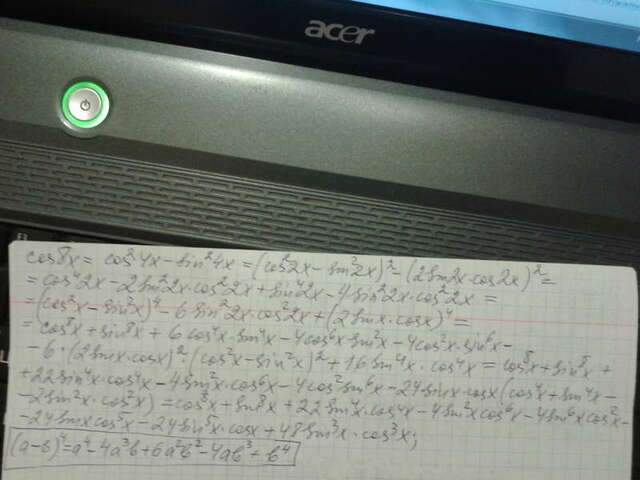 acer
cos8x = cos²4x − sin²4x = (cos²2x − sin²2x)² − (2sin2x·cos2x)² =
= cos⁴2x − 2sin²2x·cos²2x + sin⁴2x − 4sin²2x·cos²2x =
= (cos²x − sin²x)⁴ − 6sin²2x·cos²2x + (2sinx·cosx)⁴ =
= cos⁸x + sin⁸x + 6cos⁴x·sin⁴x − 4cos⁶x·sin²x − 4cos²x·sin⁶x −
− 6·(2sinx·cosx)²·(cos²x − sin²x)² + 16sin⁴x·cos⁴x = cos⁸x + sin⁸x +
+ 22sin⁴x·cos⁴x − 4sin²x·cos⁶x − 4cos²x sin⁶x − 24sinx·cosx(cos⁴x + sin⁴x −
− 2sin²x·cos²x) = cos⁸x + sin⁸x + 22sin⁴x·cos⁴x − 4sin²x cos⁶x − 4sin⁶x cos²x −
− 24sinx cos⁵x − 24sin⁵x·cosx + 48sin³x·cos³x;
(a−b)⁴ = a⁴ − 4a³b + 6a²b² − 4ab³ + b⁴